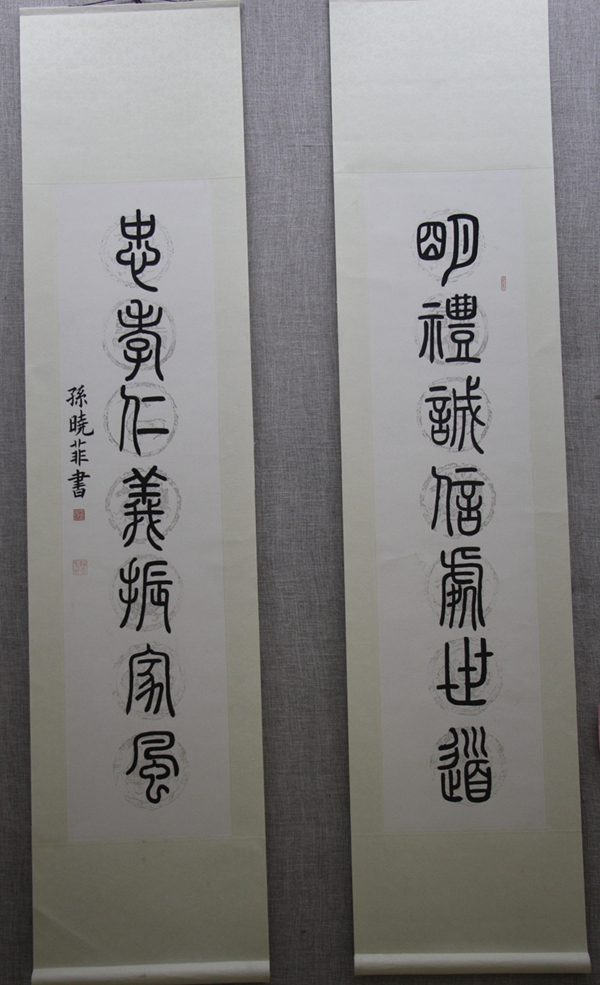 明禮誠信處世道
忠孝仁義振家風
孫曉菲書